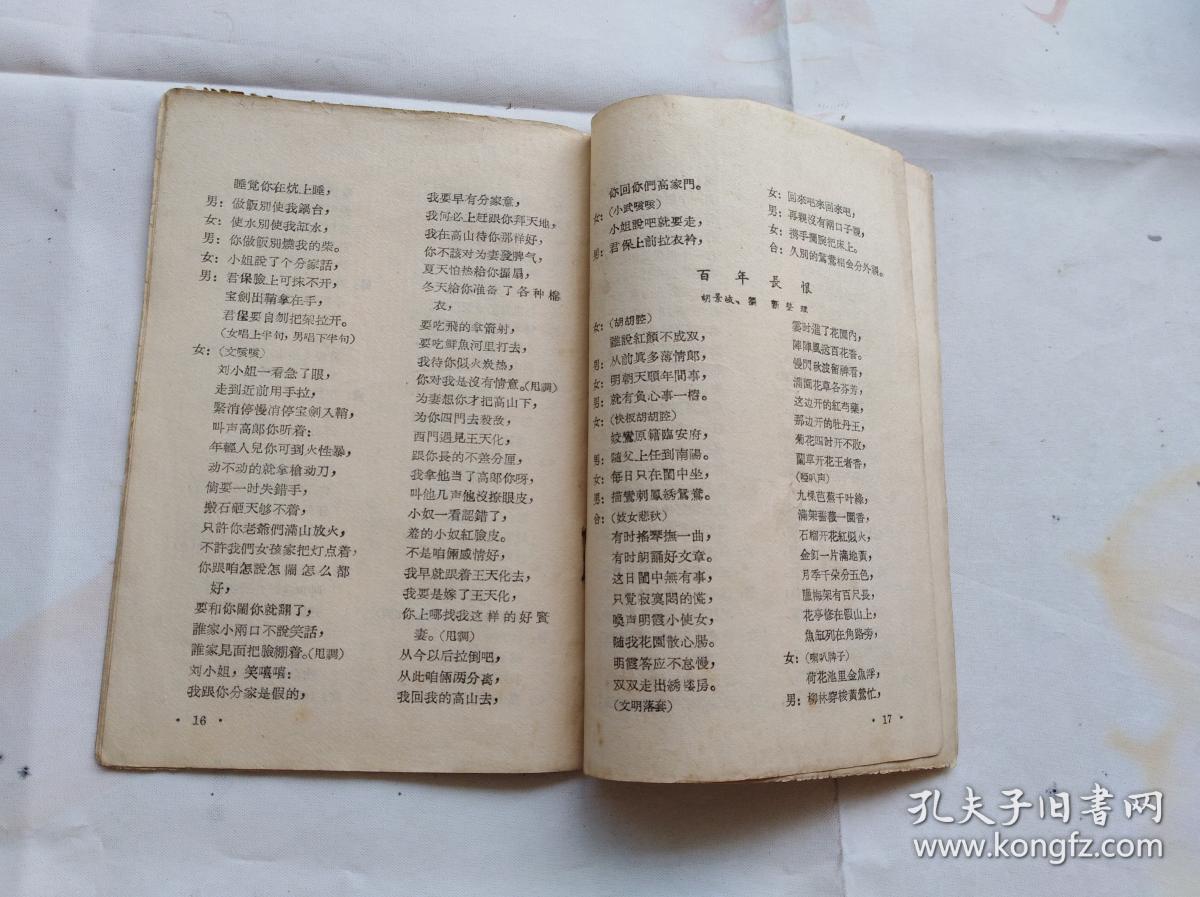 睡觉你在炕上睡，
男：做飯別使我鍋台，
女：使水別使我缸水，
男：你做飯別燒我的柴。
女：小姐說了个分家話，
男：君保臉上可抹不开，
宝劍出鞘拿在手，
君保要自刎把架拉开。
（女唱上半句，男唱下半句）
女：（文咳咳）
刘小姐一看急了眼，
走到近前用手拉，
緊消停慢消停宝劍入鞘，
叫声高郎你听着：
年輕人兒你可到火性暴，
动不动的就拿槍动刀，
倘要一时失錯手，
搬石砸天够不着，
只許你老爺們滿山放火，
不許我們女孩家把灯点着，
你跟咱怎說怎鬧怎么都
好，
要和你鬧你就翻了，
誰家小兩口不說笑話，
誰家見面把臉綳着。（甩調）
刘小姐，笑嘻嘻：
我跟你分家是假的，
• 16 •
我要早有分家意，
我何必上赶跟你拜天地，
我在高山待你那样好，
你不該对为妻發脾气，
夏天怕热給你搧扇，
冬天給你准备了各种棉
衣，
要吃飛的拿箭射，
要吃鮮魚河里打去，
我待你似火炭热，
你对我是沒有情意。（甩調）
为妻想你才把高山下，
为你四門去殺敌，
西門遇見王天化，
跟你長的不差分厘，
我拿他当了高郎你呀，
叫他几声他沒撩眼皮，
小奴一看認錯了，
羞的小奴紅臉皮。
不是咱倆感情好，
我早就跟着王天化去，
我要是嫁了王天化，
你上哪找我这样的好賢
妻。（甩調）
从今以后拉倒吧，
从此咱倆两分离，
我回我的高山去，
你回你們高家門。
女：（小武咳咳）
小姐說吧就要走，
男：君保上前拉衣衿，
女：回來吧來回來吧，
男：再親沒有兩口子親，
女：携手攔腕把床上。
合：久別的鴛鴦相会分外親。
百年長恨
胡景岐、整理
女：（胡胡腔）
誰說紅顏不成双，
男：从前眞多薄情郎，
女：明朝天順年間事，
男：就有負心事一樁。
女：（快板胡胡腔）
姣鸞原籍臨安府，
男：隨父上任到南陽。
女：每日只在閨中坐，
男：描鸞刺鳳綉鴛鴦。
合：（妓女悲秋）
有时搖琴撫一曲，
有时朗誦好文章。
这日閨中無有事，
只覚寂寞悶的慌，
喚声明霞小使女，
随我花園散心腸。
明霞答应不怠慢，
双双走出綉楼房。
（文明落套）
霎时進了花園內，
陣陣風送百花香。
慢閃秋波留神看，
滿園花草各芬芳，
这边开的紅芍藥，
那边开的牡丹王，
菊花四时开不敗，
蘭草开花王者香，
（啞叭声）
九棵芭蕉千叶綠，
滿架薔薇一園香，
石榴开花紅似火，
金釘一片滿地黃，
月季千朵分五色，
臘梅架有百尺長，
花亭修在假山上，
魚缸列在角路旁，
女：（喇叭牌子）
荷花池里金魚浮，
男：柳林穿梭黃鶯忙，
• 17 •
孔夫子旧书网
www.kongfz.com